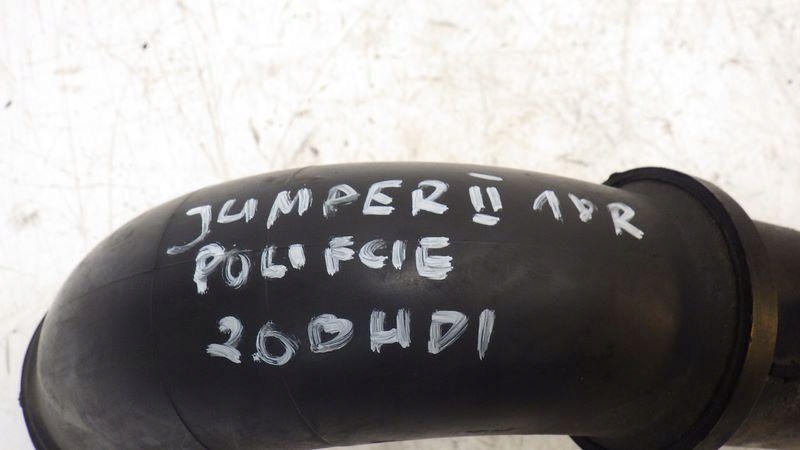 JUMPER II 18R
POLIFCIE
20BHDI